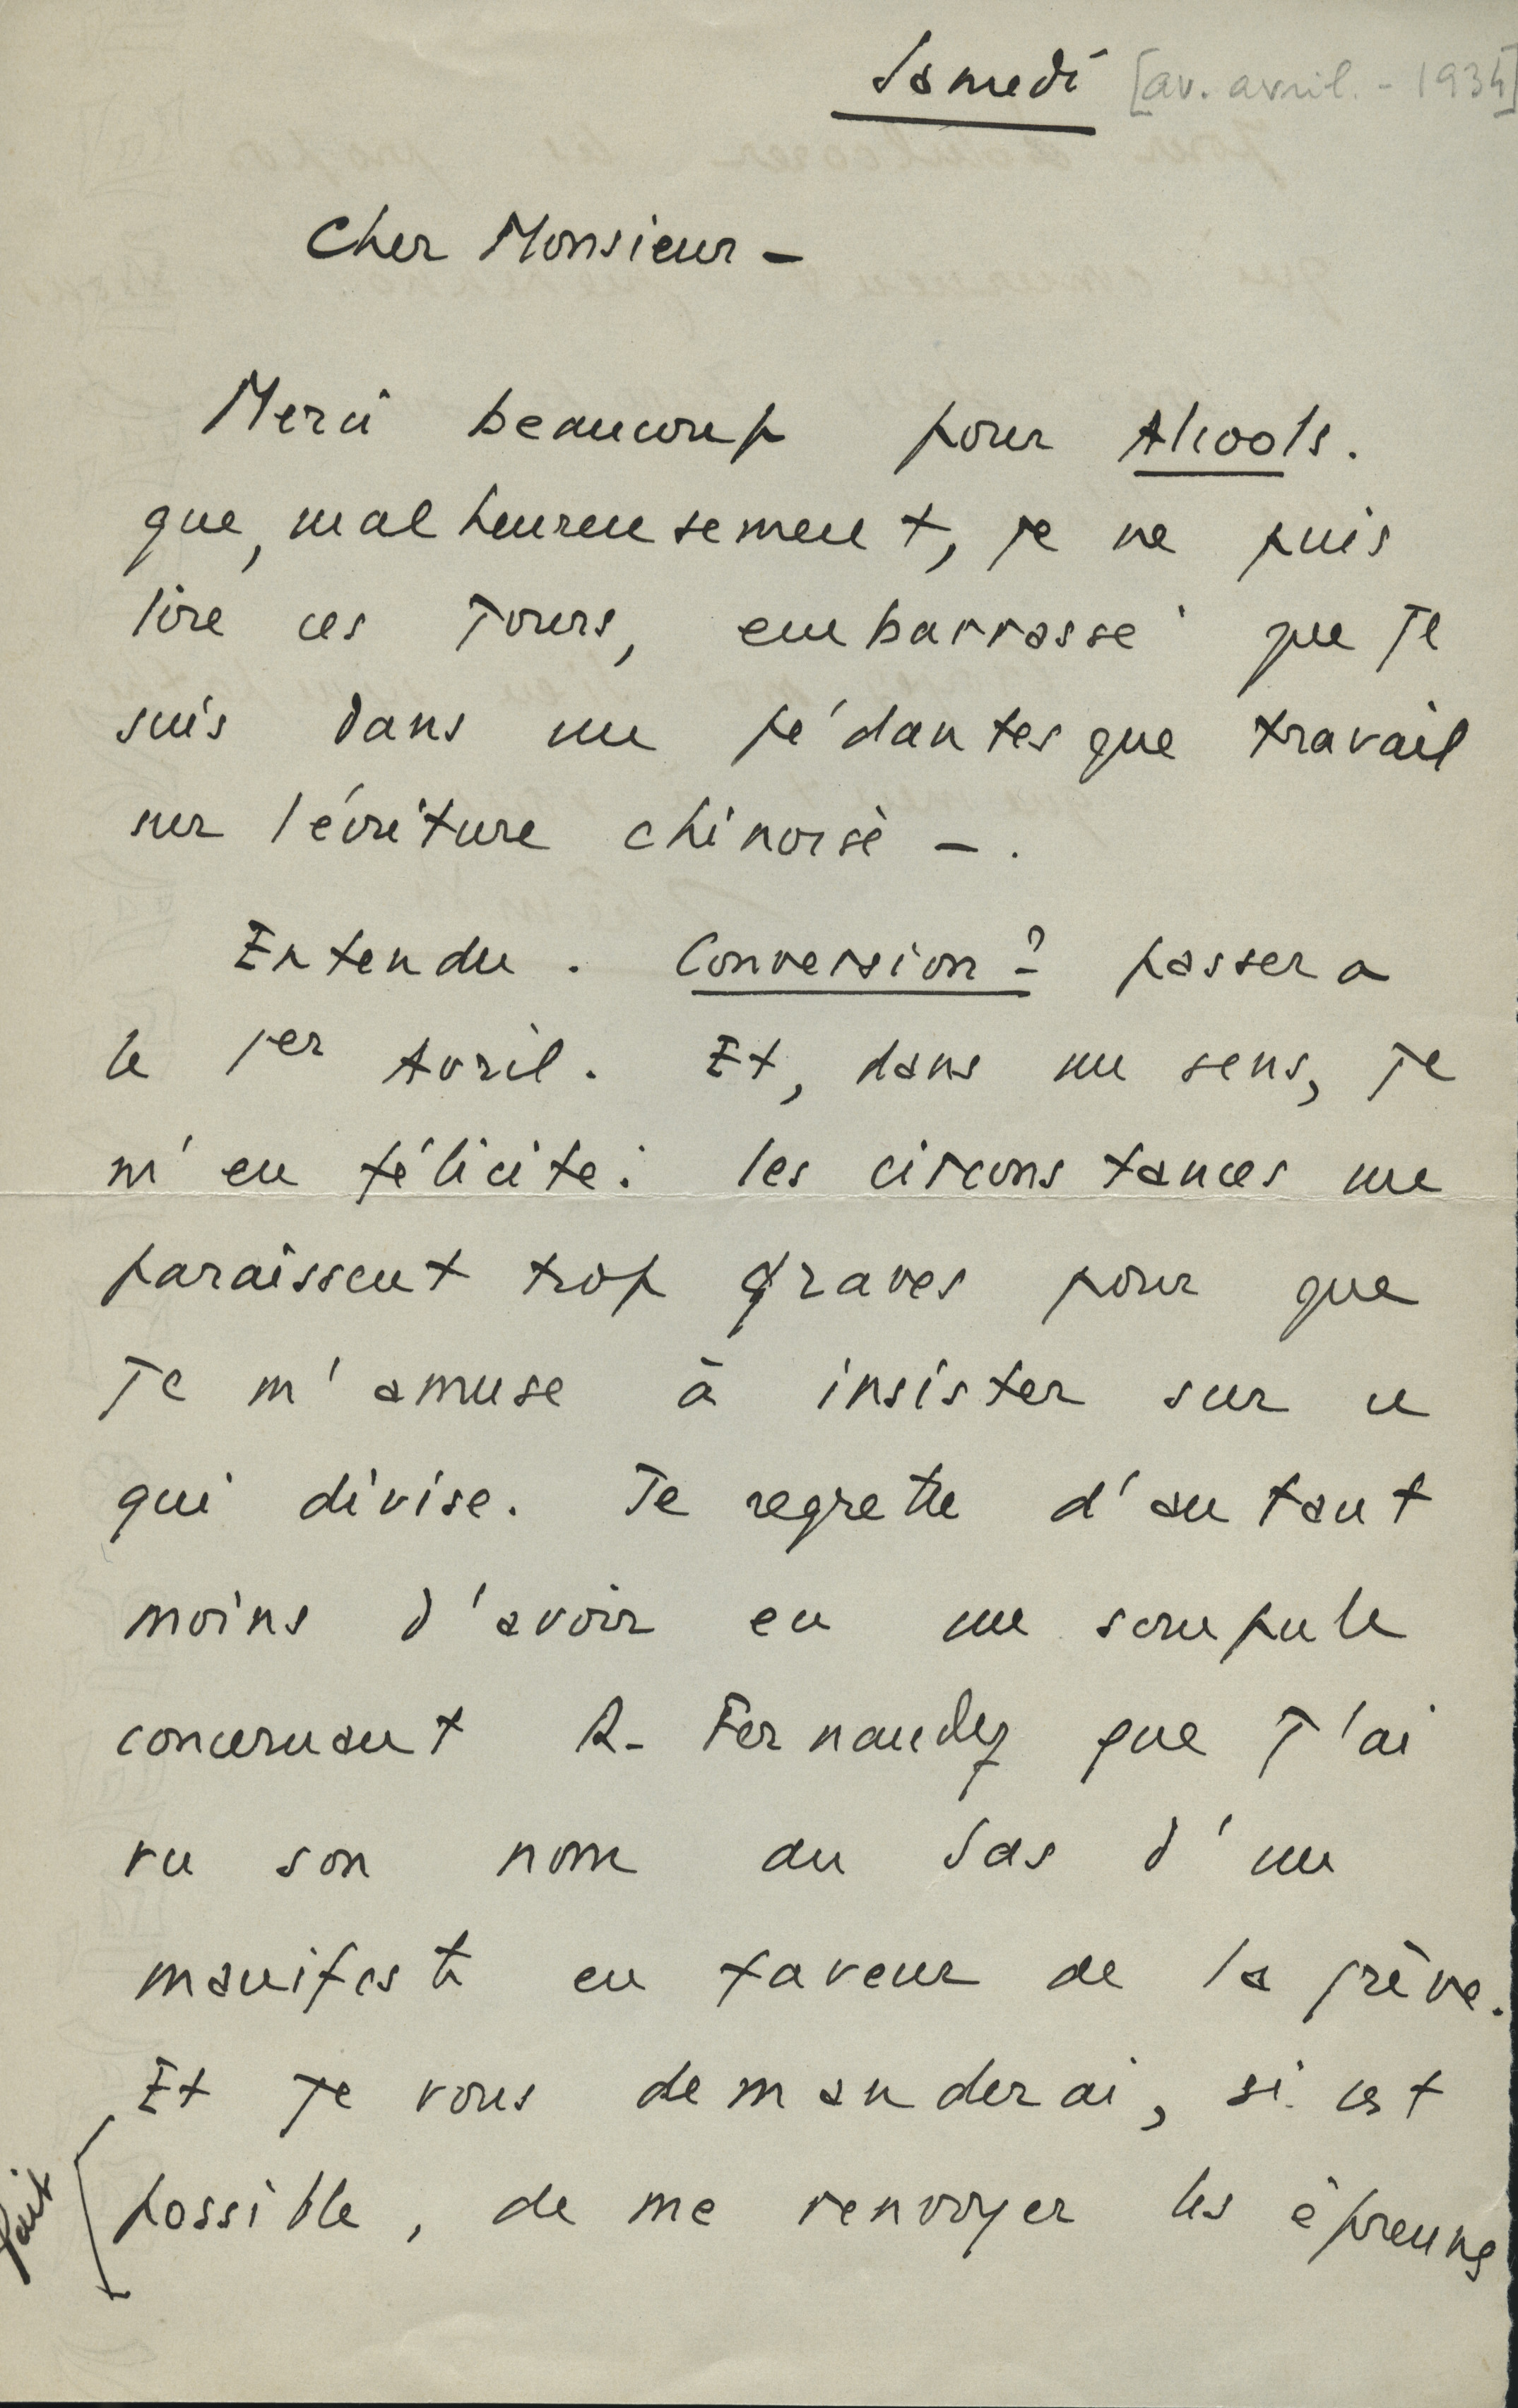 Samedi [av. avril. - 1934]
Cher Monsieur -
Merci beaucoup pour Alcools.
que, malheureusement, je ne puis
lire ces jours, embarrassé que je
suis dans un pédantesque travail
sur l'écriture chinoise - .
Entendu. Conversion? passera
le 1er Avril. Et, dans un sens, je
m'en félicite: les circonstances me
paraissent trop graves pour que
je m'amuse à insister sur ce
qui divise. Je regrette d'autant
moins d'avoir eu un scrupule
concernant R. Fernandez que j'ai
vu son nom au bas d'un
manifeste en faveur de la grève.
Et je vous demanderai, si c'est
possible, de me renvoyer les épreuves
fait